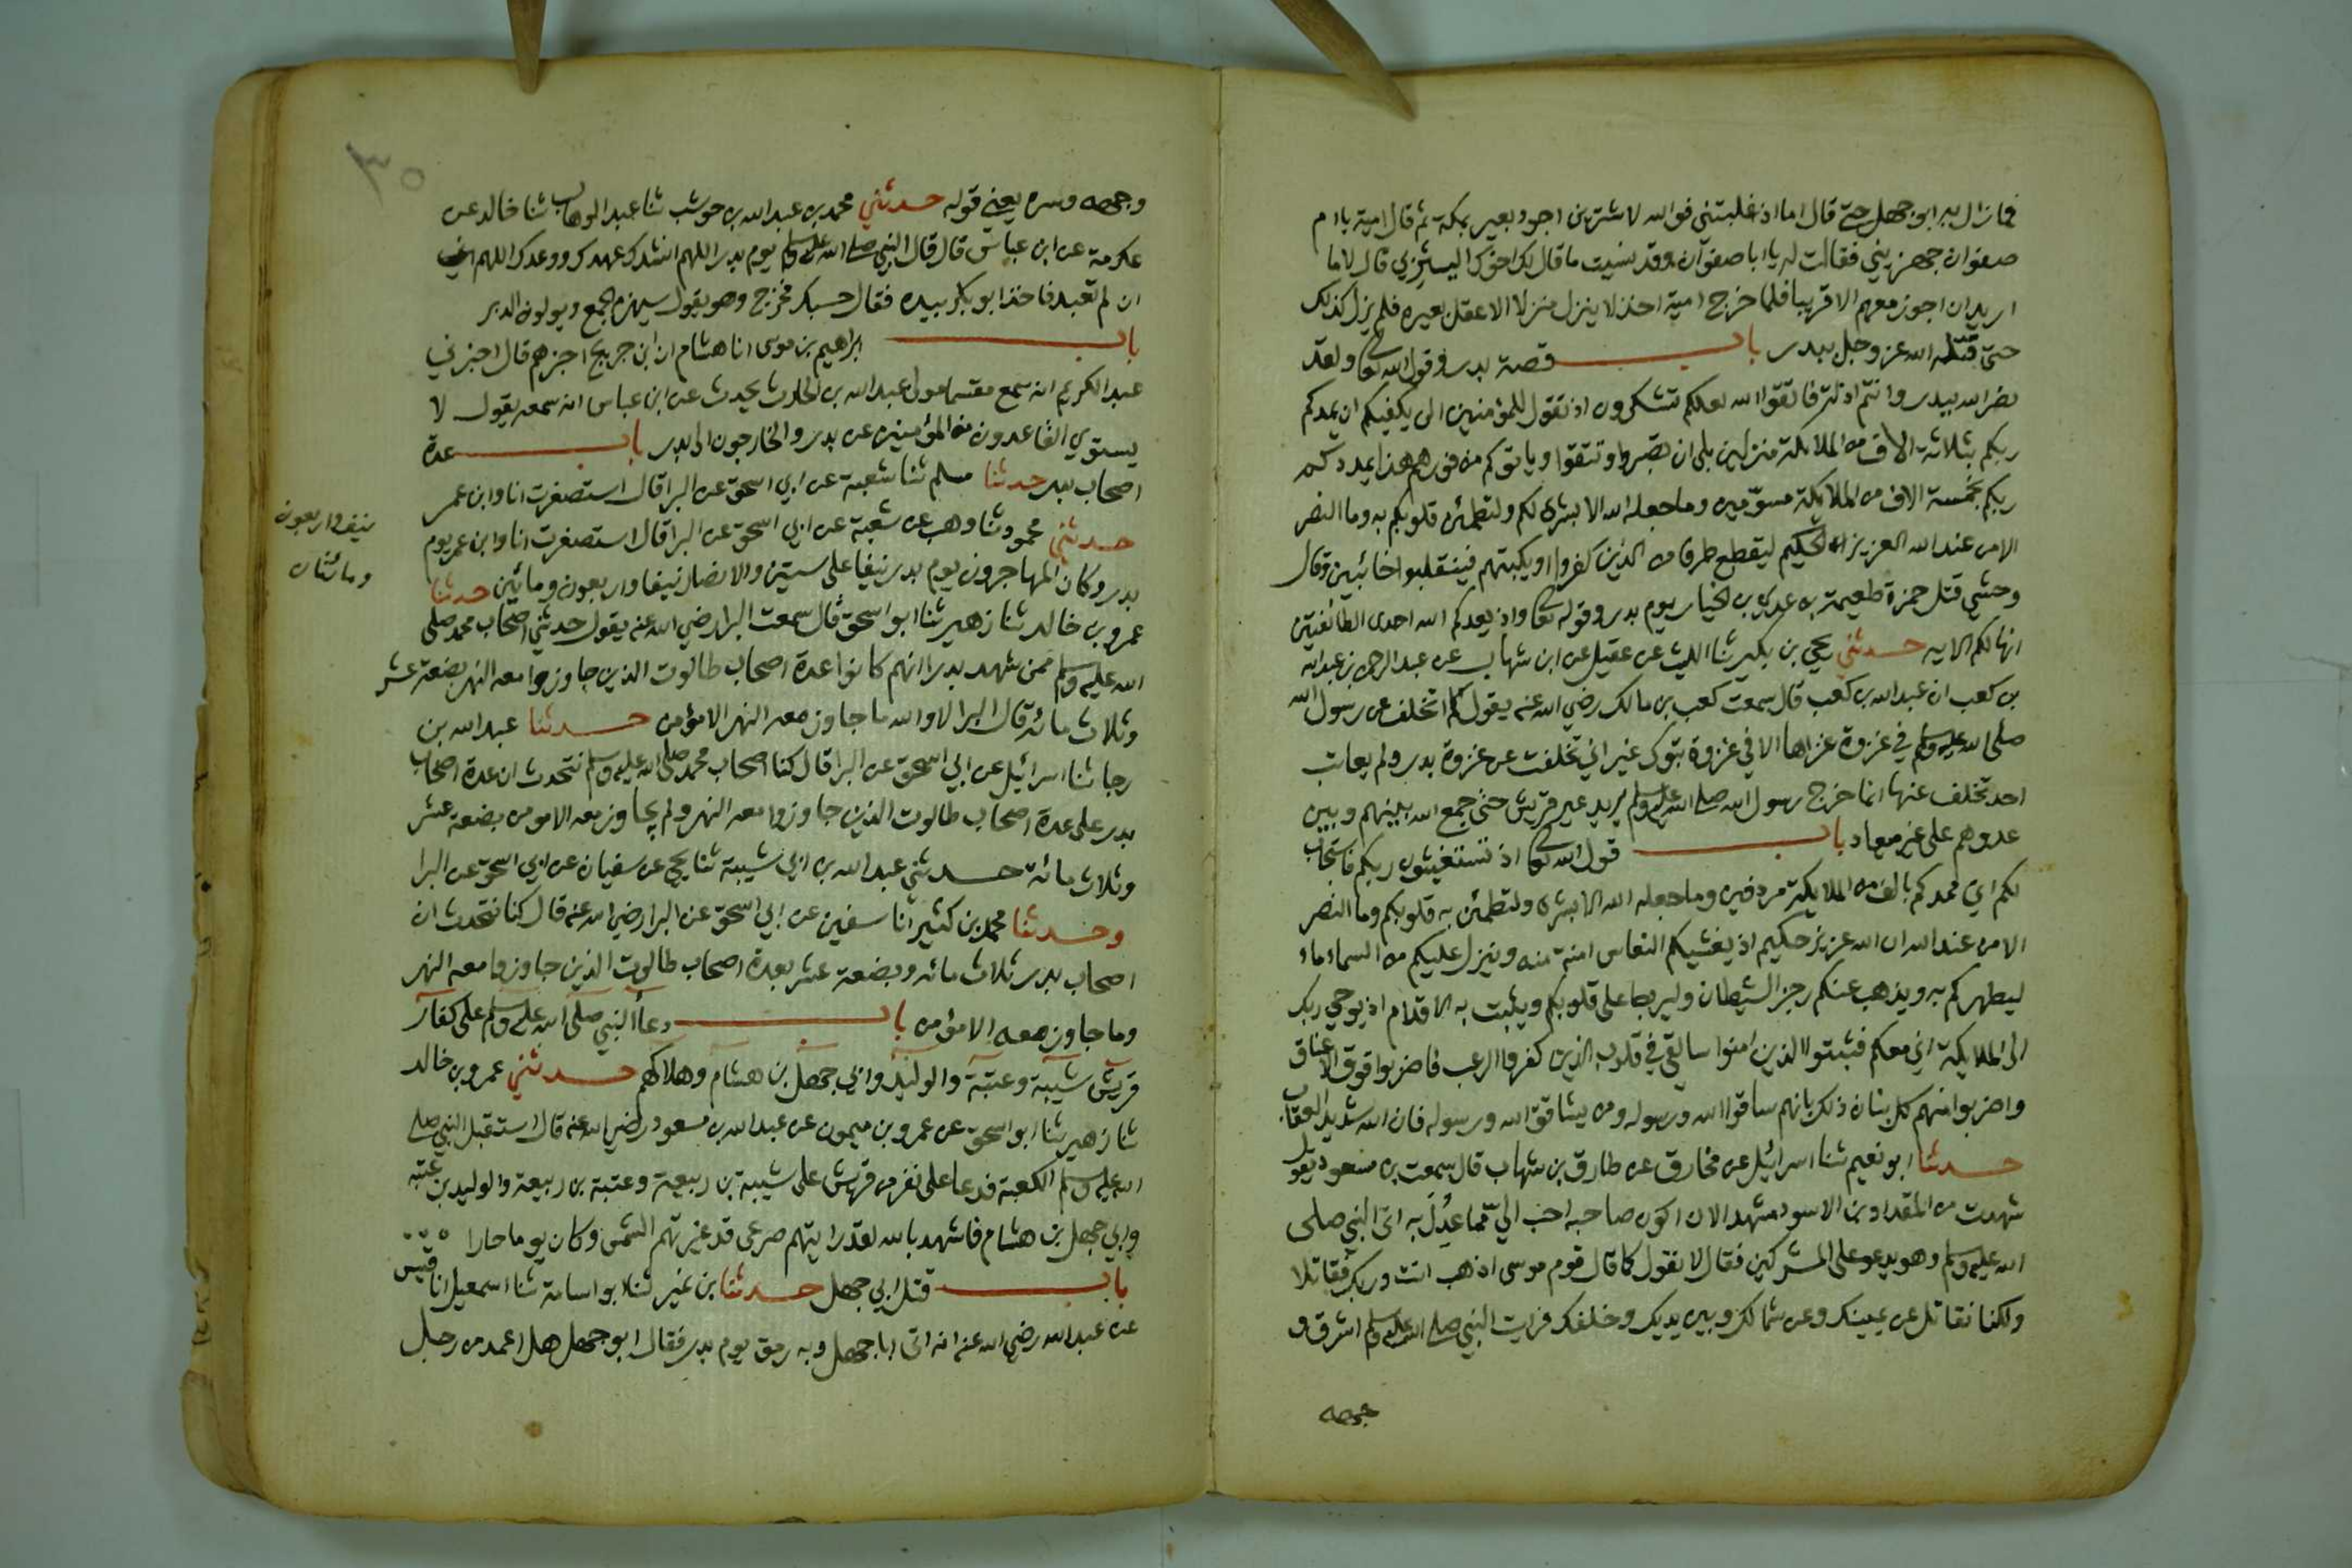 فمازال به ابو جهل حتى قال اما اذ غلبتني فوالله لاشترين اجود بعير بمكة ثم قال امية يا ام
صفوان جهزيني فقالت له يا ابا صفوان وقد نسيت ما قال لك اخوك اليثربي قال لا ما
اريد ان اجوز معهم الا قريبا فلما خرج امية اخذ لا ينزل منزلا الا عقل بعيره فلم يزل كذلك
حتى قتله الله عز وجل ببدر باب قصة بدر وقول الله تعا ولقد
نصركم الله ببدر وانتم اذلة فاتقوا الله لعلكم تشكرون اذ تقول للمؤمنين الن يكفيكم ان يمدكم
ربكم بثلاثة الاف من الملائكة منزلين بلى ان تصبروا وتتقوا وياتوكم من فورهم هذا يمددكم
ربكم بخمسة الاف من الملائكة مسومين وما جعله الله الا بشرى لكم ولتطمئن قلوبكم به وما النصر
الا من عند الله العزيز الحكيم ليقطع طرفا من الذين كفروا او يكبتهم فينقلبوا خائبين وقال
وحشي قتل حمزة طعيمة بن عدي بن الخيار يوم بدر وقوله تعا واذ يعدكم الله احدى الطائفتين
انها لكم الايه حدثني يحيى بن بكير ثنا الليث عن عقيل عن ابن شهاب عن عبد الرحمن بن عبد الله
بن كعب ان عبد الله بن كعب قال سمعت كعب بن مالك رضي الله عنه يقول لم اتخلف عن رسول الله
صلى الله عليه وسلم في غزوة غزاها الا في غزوة تبوك غير اني تخلفت عن غزوة بدر ولم يعاتب
احد تخلف عنها انما خرج رسول الله صلى الله عليه وسلم يريد عير قريش حتى جمع الله بينهم وبين
عدوهم على غير ميعاد باب قول الله تعا اذ تستغيثون ربكم فاستجاب
لكم اني ممدكم بالف من الملايكة مردفين وما جعله الله الا بشرى ولتطمئن به قلوبكم وما النصر
الا من عند الله ان الله عزيز حكيم اذ يغشيكم النعاس امنة منه وينزل عليكم من السماء ماء
ليطهركم به ويذهب عنكم رجز الشيطان وليربط على قلوبكم ويثبت به الاقدام اذ يوحي ربك
الى الملايكة اني معكم فثبتوا الذين امنوا سالقي في قلوب الذين كفروا الرعب فاضربوا فوق الاعناق
واضربوا منهم كل بنان ذلك بانهم شاقوا الله ورسوله ومن يشاقق الله ورسوله فان الله شديد العقاب
حدثنا ابو نعيم ثنا اسرائيل عن مخارق عن طارق بن شهاب قال سمعت بن مسعود يقول
شهدت من المقداد بن الاسود مشهدا لان اكون صاحبه احب الي مما عدل به اتى النبي صلى
الله عليه وسلم وهو يدعو على المشركين فقال لا نقول كما قال قوم موسى اذهب انت وربك فقاتلا
ولكنا نقاتل عن يمينك وعن شمالك وبين يديك وخلفك فرايت النبي صلى الله عليه وسلم اشرق و
جهه
٣٠
وجهه وسره يعني قوله حدثني محمد بن عبد الله بن حوشب ثنا عبد الوهاب ثنا خالد عن
عكرمة عن ابن عباس قال قال النبي صلى الله عليه وسلم يوم بدر اللهم انشدك عهدك ووعدك اللهم
ان لم تعبد فاخذ ابو بكر بيده فقال حسبك فخرج وهو يقول سيهزم الجمع ويولون الدبر
باب ابراهيم بن موسى انا هشام ان ابن جريج اخبرهم قال اخبرني
عبد الكريم انه سمع مقسما مولى عبد الله بن الحارث يحدث عن ابن عباس انه سمعه يقول لا
يستوي القاعدون من المؤمنين عن بدر والخارجون الى بدر باب عدة
اصحاب بدر حدثنا مسلم ثنا شعبة عن ابي اسحق عن البرا قال استصغرت انا وابن عمر
حدثني محمود ثنا وهب عن شعبة عن ابي اسحق عن البرا قال استصغرت انا وابن عمر يوم
بدر وكان المهاجرون يوم بدر نيفا على ستين والانصار نيفا واربعون ومائتين حدثنا
نيف واربعون
ومائتان
عمرو بن خالد ثنا زهير ثنا ابو اسحق قال سمعت البرا رضي الله عنه يقول حدثني اصحاب محمد صلى
الله عليه وسلم ممن شهد بدرا انهم كانوا عدة اصحاب طالوت الذين جاوزوا معه النهر بضعة عشر
وثلاث مائة قال البرا لا والله ما جاوز معه النهر الا مؤمن حدثنا عبد الله بن
رجا ثنا اسرائيل عن ابي اسحق عن البرا قال كنا اصحاب محمد صلى الله عليه وسلم نتحدث ان عدة اصحاب
بدر على عدة اصحاب طالوت الذين جاوزوا معه النهر ولم يجاوز معه الا مومن بضعة عشر
وثلاث مائة حدثني عبد الله بن ابي شيبة ثنا يحيى عن سفيان عن ابي اسحق عن البرا
وحدثنا محمد بن كثير انا سفين عن ابي اسحق عن البرا رضي الله عنه قال كنا نتحدث ان
اصحاب بدر ثلاث مائه وبضعة عشر بعدة اصحاب طالوت الذين جاوزوا معه النهر
وما جاوز معه الا مؤمن باب دعا النبي صلى الله عليه وسلم على كفار
قريش شيبة وعتبة والوليد وابي جهل بن هشام وهلاكهم حدثني عمرو بن خالد
ثنا زهير ثنا ابو اسحق عن عمرو بن ميمون عن عبد الله بن مسعود رضي الله عنه قال استقبل النبي صلى
الله عليه وسلم الكعبة فدعا على نفر من قريش على شيبة بن ربيعة وعتبة بن ربيعة والوليد بن عتبة
وابي جهل بن هشام فاشهد بالله لقد رايتهم صرعى قد غيرتهم الشمس وكان يوما حارا
باب قتل ابي جهل حدثنا بن نمير ثنا ابو اسامة ثنا اسمعيل انا قيس
عن عبد الله رضي الله عنه انه اتى ابا جهل وبه رمق يوم بدر فقال ابو جهل هل اعمد من رجل